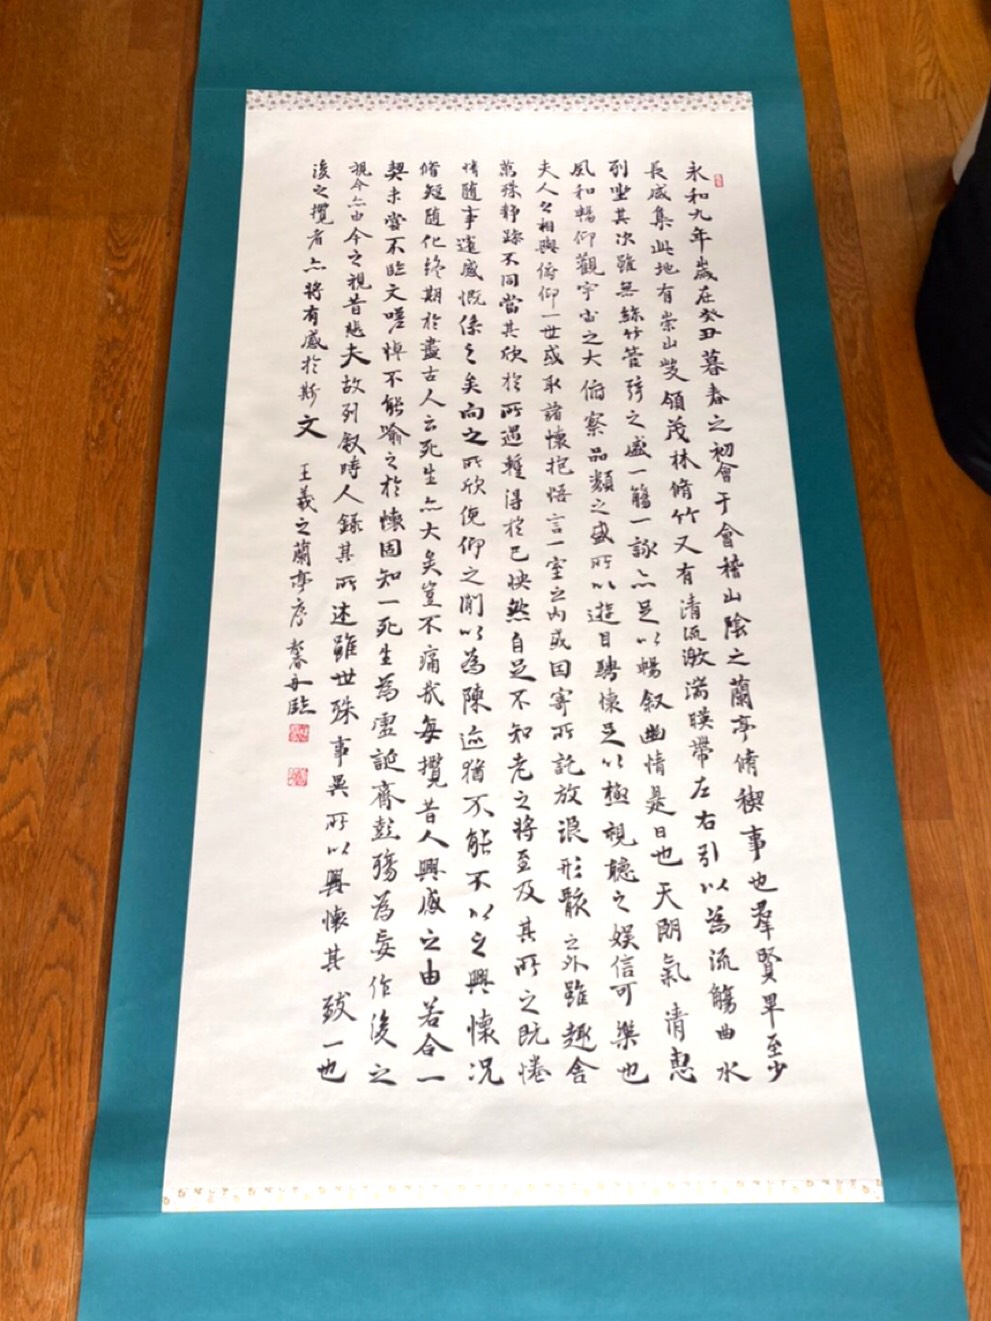 永和九年歲在癸丑暮春之初會于會稽山陰之蘭亭脩稧事也羣賢畢至少
長咸集此地有崇山峻領茂林脩竹又有清流激湍暎帶左右引以為流觴曲水
列坐其次雖無絲竹管弦之盛一觴一詠亦足以暢叙幽情是日也天朗氣清惠
風和暢仰觀宇宙之大俯察品類之盛所以遊目騁懷足以極視聽之娛信可樂也
夫人之相與俯仰一世或取諸懷抱悟言一室之內或因寄所託放浪形骸之外雖趣舍
萬殊靜躁不同當其欣於所遇暫得於己怏然自足不知老之將至及其所之既惓
情隨事遷感慨係之矣向之所欣俛仰之閒以為陳迹猶不能不以之興懷況
脩短隨化終期於盡古人云死生亦大矣豈不痛哉每攬昔人興感之由若合一
契未嘗不臨文嗟悼不能喻之於懷固知一死生為虛誕齊彭殤為妄作後之
視今亦由今之視昔悲夫故列叙時人錄其所述雖世殊事異所以興懷其致一也
後之攬者亦將有感於斯文 王羲之蘭亭序 臨